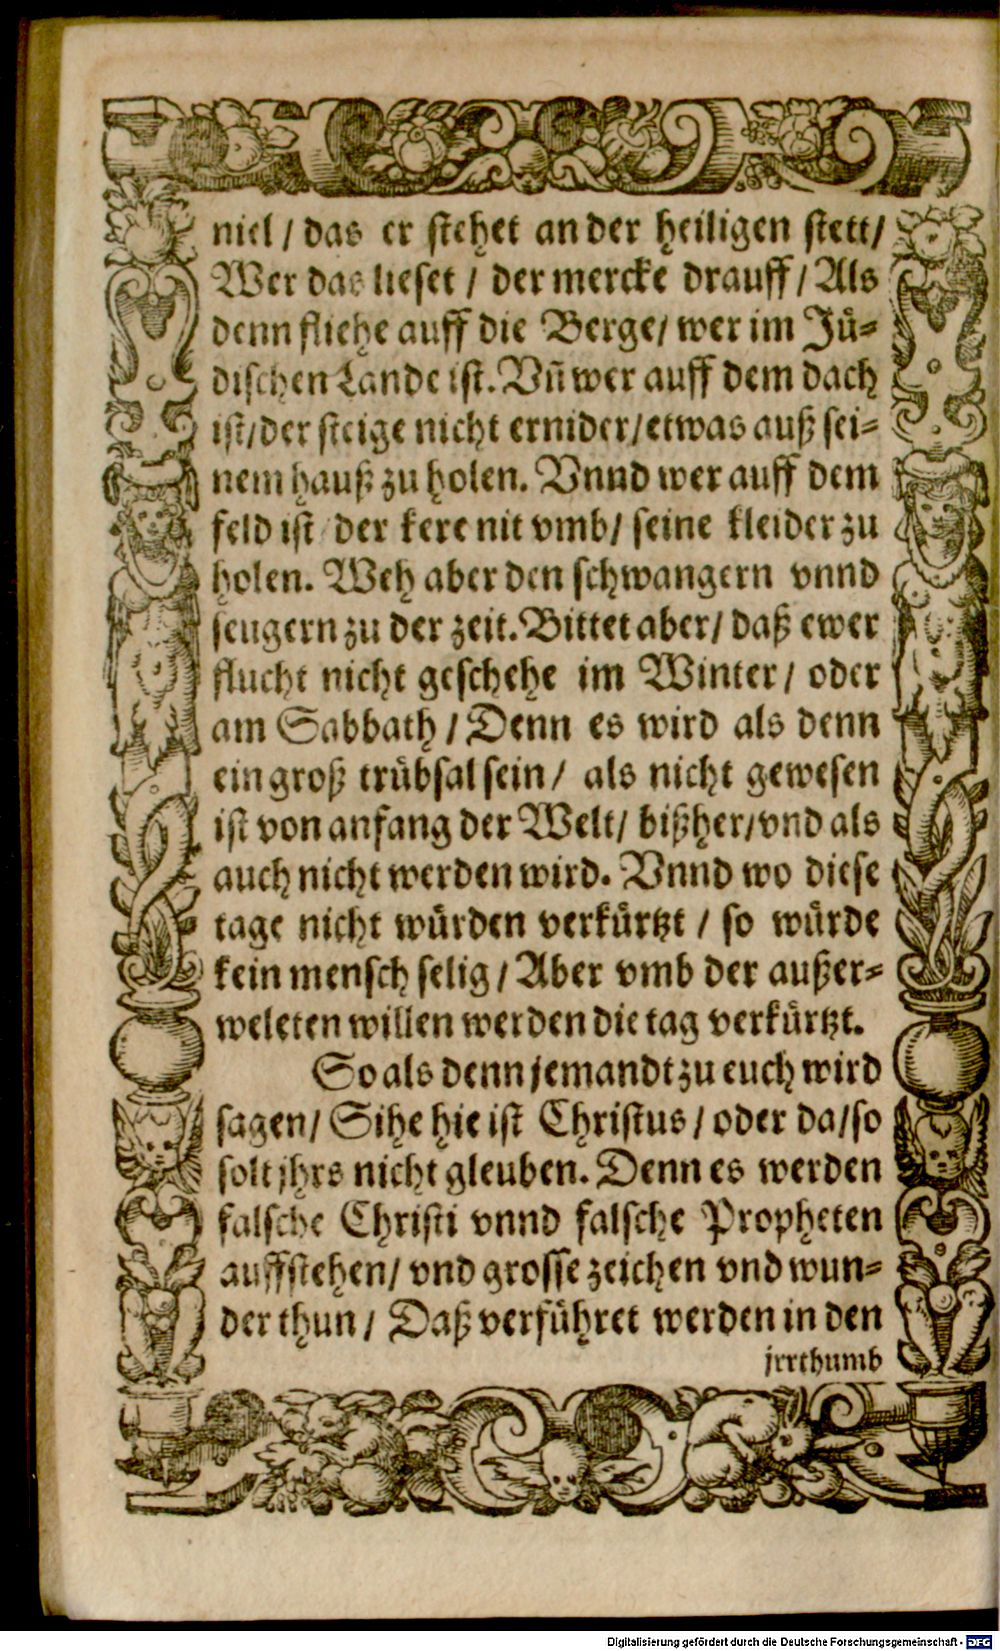 niel / das er stehet an der heiligen stett/
Wer das lieset / der mercke drauff / Als
denn fliehe auff die Berge/ wer im Jü-
dischen Lande ist. Vñ wer auff dem dach
ist/der steige nicht ernider/etwas auß sei-
nem hauß zu holen. Vnnd wer auff dem
feld ist der kere nit vmb/ seine kleider zu
holen. Weh aber den schwangern vnnd
seugern zu der zeit. Bittet aber/ daß ewer
flucht nicht geschehe im Winter / oder
am Sabbath / Denn es wird als denn
ein groß trübsal sein / als nicht gewesen
ist von anfang der Welt/ bißher/vnd als
auch nicht werden wird. Vnnd wo diese
tage nicht würden verkürtzt / so würde
kein mensch selig / Aber vmb der außer-
weleten willen werden die tag verkürtzt.
So als denn jemandt zu euch wird
sagen/ Sihe hie ist Christus / oder da/so
solt jhrs nicht gleuben. Denn es werden
falsche Christi vnnd falsche Propheten
auffstehen/ vnd grosse zeichen vnd wun-
der thun / Daß verführet werden in den
jrrthumb
Digitalisierung gefördert durch die Deutsche Forschungsgemeinschaft - DFG